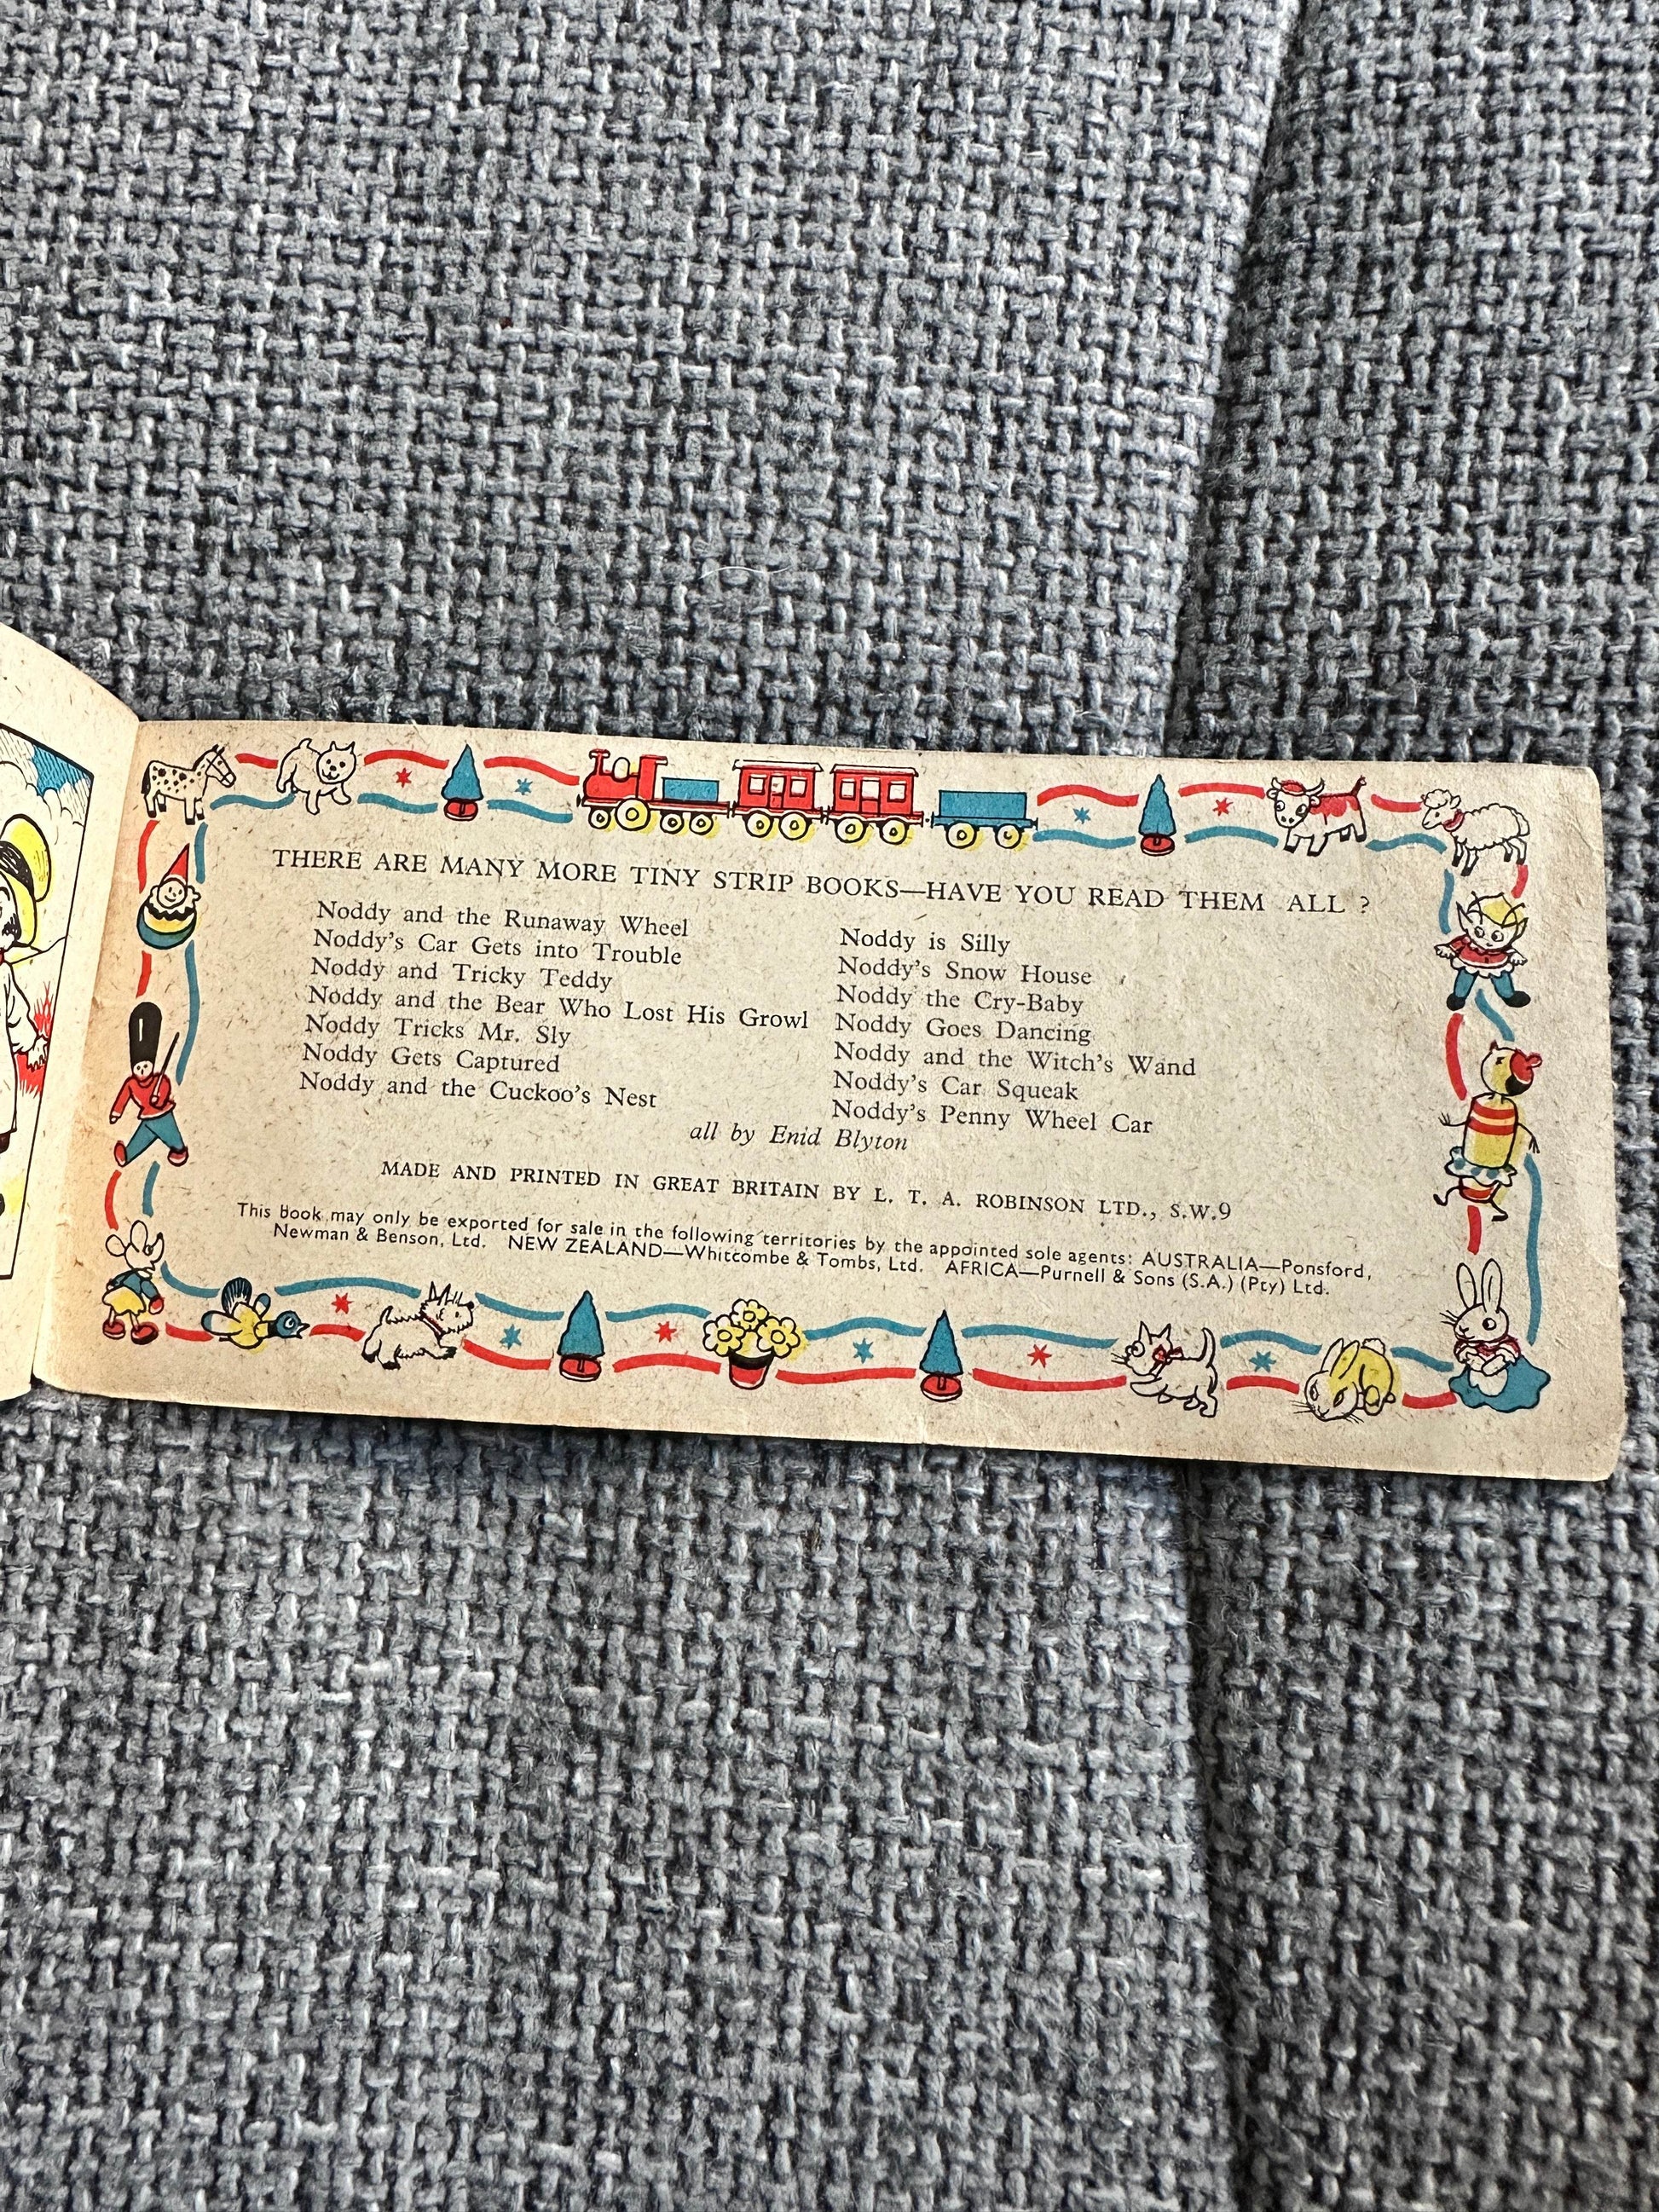 THERE ARE MANY MORE TINY STRIP BOOKS—HAVE YOU READ THEM ALL ?
Noddy and the Runaway Wheel
Noddy's Car Gets into Trouble
Noddy and Tricky Teddy
Noddy and the Bear Who Lost His Growl
Noddy Tricks Mr. Sly
Noddy Gets Captured
Noddy and the Cuckoo's Nest
Noddy is Silly
Noddy's Snow House
Noddy the Cry-Baby
Noddy Goes Dancing
Noddy and the Witch's Wand
Noddy's Car Squeak
Noddy's Penny Wheel Car
all by Enid Blyton
MADE AND PRINTED IN GREAT BRITAIN BY L. T. A. ROBINSON LTD., S.W.9
This Book may only be exported for sale in the following territories by the appointed sole agents: AUSTRALIA—Ponsford,
Newman & Benson, Ltd. NEW ZEALAND—Whitcombe & Tombs, Ltd. AFRICA—Purnell & Sons (S.A.) (Pty) Ltd.